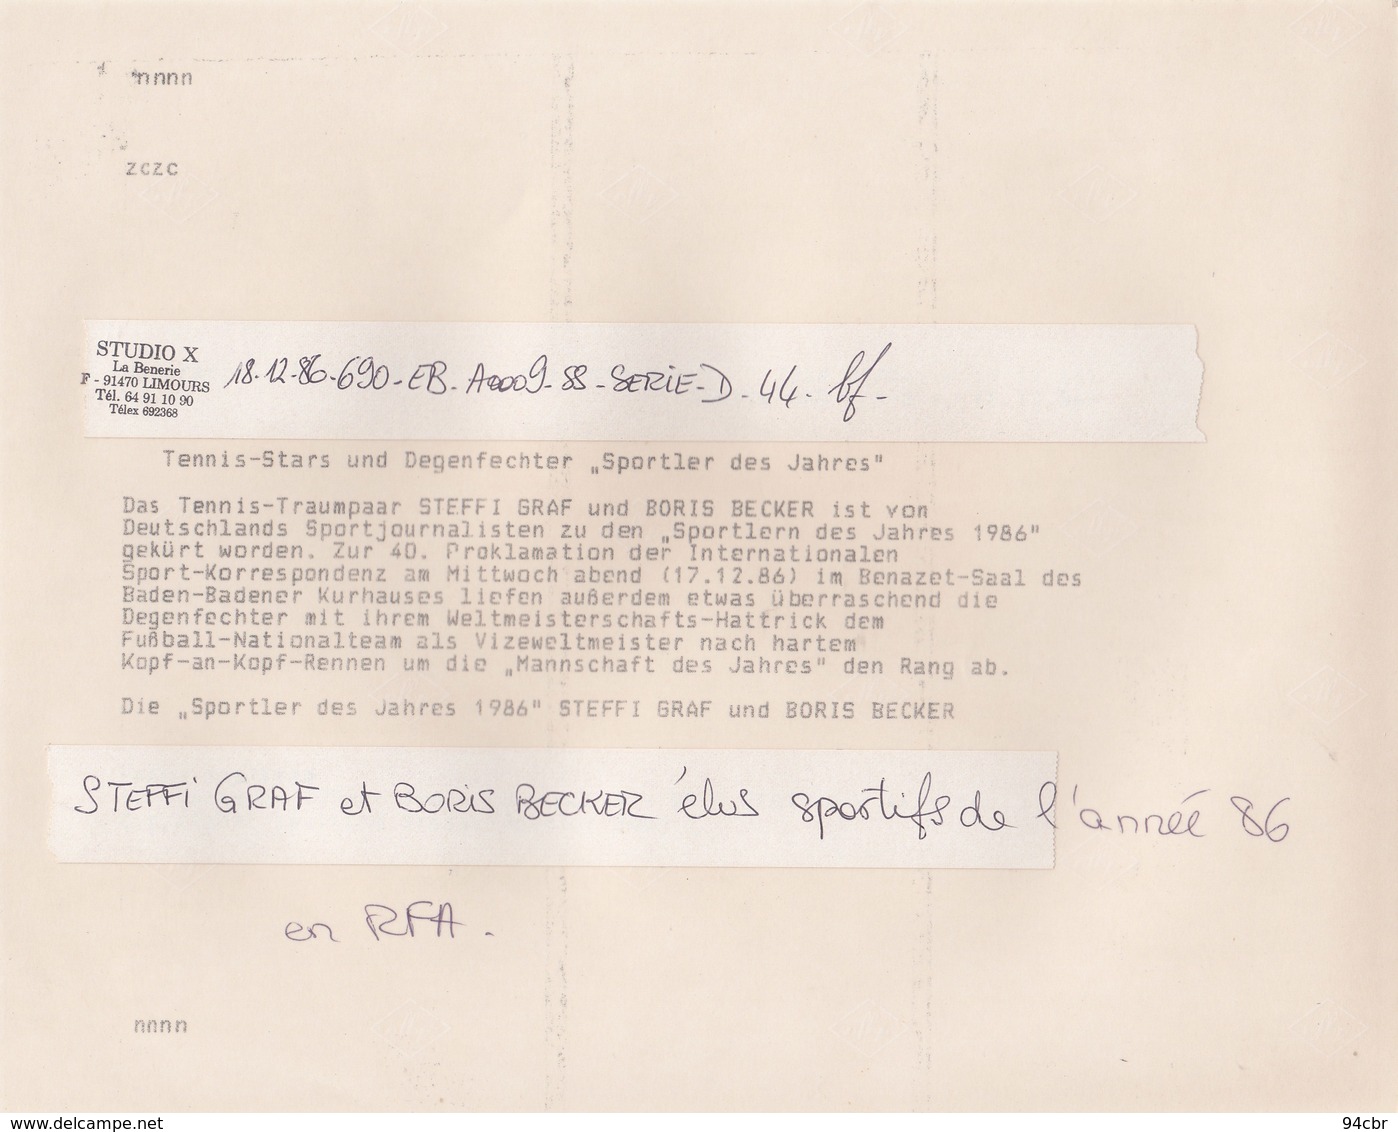 nnnn
zczc
STUDIO X
La Benerie
F - 91470 LIMOURS
Tél. 64 91 10 90
Télex 692368
18.12.86-690-EB-A0009-SS-SERIE-D-44-bf-
Tennis-Stars und Degenfechter „Sportler des Jahres"
Das Tennis-Traumpaar STEFFI GRAF und BORIS BECKER ist von
Deutschlands Sportjournalisten zu den „Sportlern des Jahres 1986"
gekürt worden. Zur 40. Proklamation der Internationalen
Sport-Korrespondenz am Mittwoch abend (17.12.86) im Benazet-Saal des
Baden-Badener Kurhauses liefen außerdem etwas überraschend die
Degenfechter mit ihrem Weltmeisterschafts-Hattrick dem
Fußball-Nationalteam als Vizeweltmeister nach hartem
Kopf-an-Kopf-Rennen um die „Mannschaft des Jahres" den Rang ab.
Die „Sportler des Jahres 1986" STEFFI GRAF und BORIS BECKER
STEFFi GRAF et BORiS BECKER élus sportifs de l'année 86
en RFA.
nnnn
www.delcampe.net
94cbr